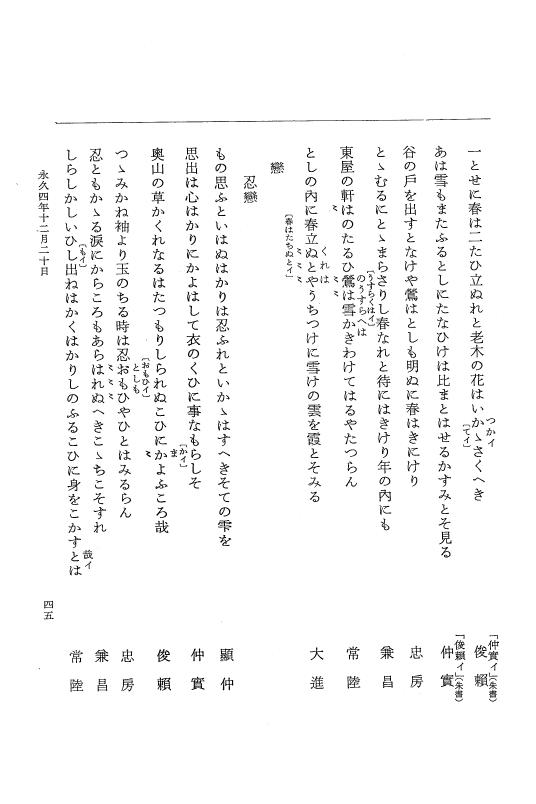 一とせに春は二たひ立ぬれと老木の花はいかゝさくへき　俊頼
つかイ
〔てイ〕
「仲實イ」(朱書)
あは雪もまたふるとしにたなひけは比まとはせるかすみとそ見る　仲實
「俊頼イ」(朱書)
谷の戶を出すとなけや鶯はとしも明ぬに春はきにけり　忠房
とゝむるにとゝまらさりし春なれと待にはきけり年の內にも　兼昌
〔うすらくはイ〕
のうすらへは
東屋の軒はのたるひ鶯は雪かきわけてはるやたつらん　常陸
くれは
としの內に春立ぬとやうちつけに雪けの雲を霞とそみる　大進
〔春はたちぬとイ〕
戀
忍戀
もの思ふといはぬはかりは忍ふれといかゝはすへきそての雫を　顯仲
思出は心はかりにかよはして衣のくひに事なもらしそ　仲實
〔かイ〕
ま
奧山の草かくれなるはたつもりしられぬこひにかよふころ哉　俊頼
〔おもひイ〕
としも
つゝみかね袖より玉のちる時は忍おもひやひとはみるらん　忠房
忍ともかゝる淚にからころもあらはれぬへきこゝちこそすれ　兼昌
〔もイ〕
哉イ
しらしかしいひし出ねはかくはかりしのふるこひに身をこかすとは　常陸
永久四年十二月二十日
四五